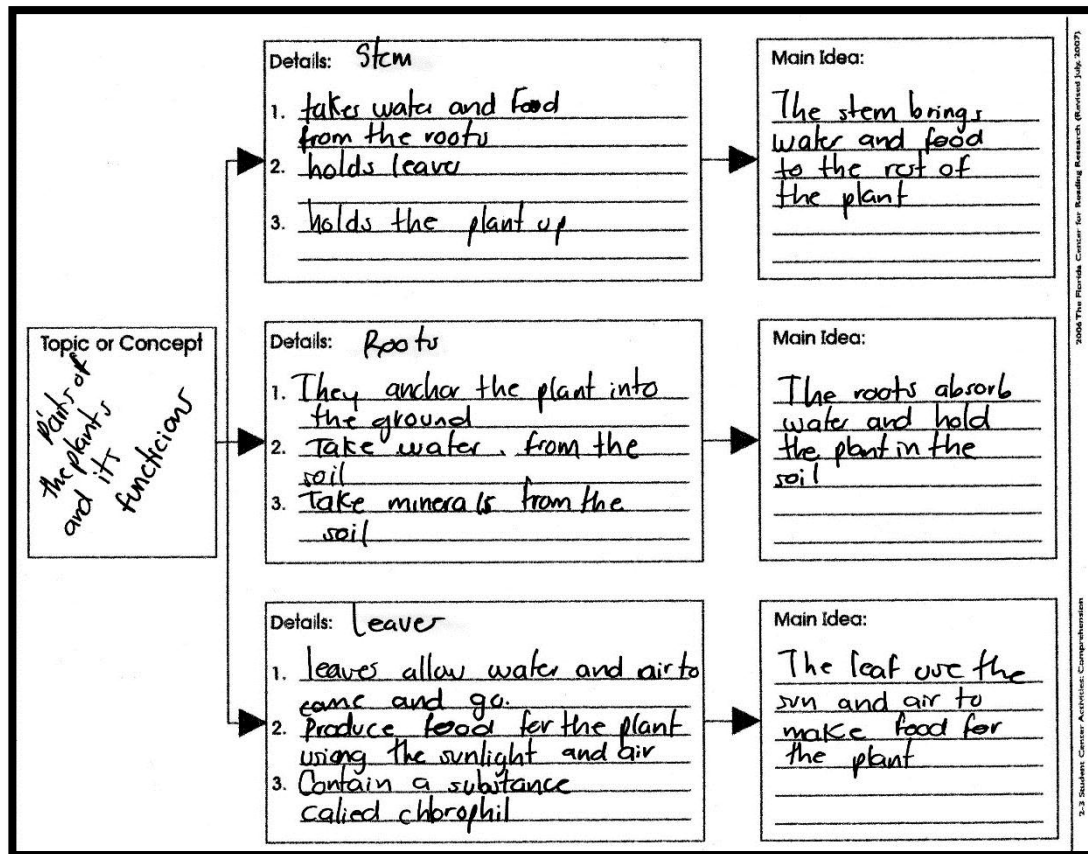 Details: Stem
1. takes water and food
from the roots
2. holds leaves
3. holds the plant up
Main Idea:
The stem brings
water and food
to the rest of
the plant
Topic or Concept
Parts of
the plants
and its
functicians
Details: Roots
1. They anchor the plant into
the ground
2. Take water . from the
soil
3. Take minerals from the
soil
Main Idea:
The roots absorb
water and hold
the plant in the
soil
Details: Leaves
1. leaves allow water and air to
come and go.
2. Produce food for the plant
using the sunlight and air
3. Contain a substance
called chlorophil
Main Idea:
The leaf use the
sun and air to
make food for
the plant
2006 The Florida Center for Reading Research (Revised July, 2007)
2-3 Student Center Activities: Comprehension